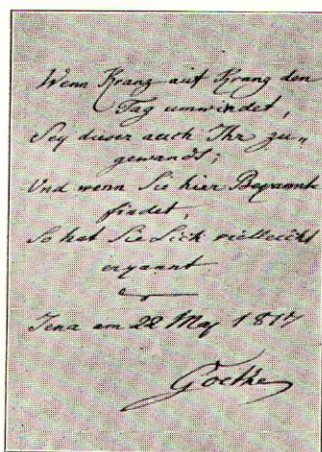 Wenn Kranz auf Kranz den
Tag umwindet,
Sey dieser auch Ihr zu„
gewandt;
Und wenn Sie hier Bekannte
findet,
So hat Sie Sich vielleicht
erkannt
Jena am 22 May 1817
Goethe